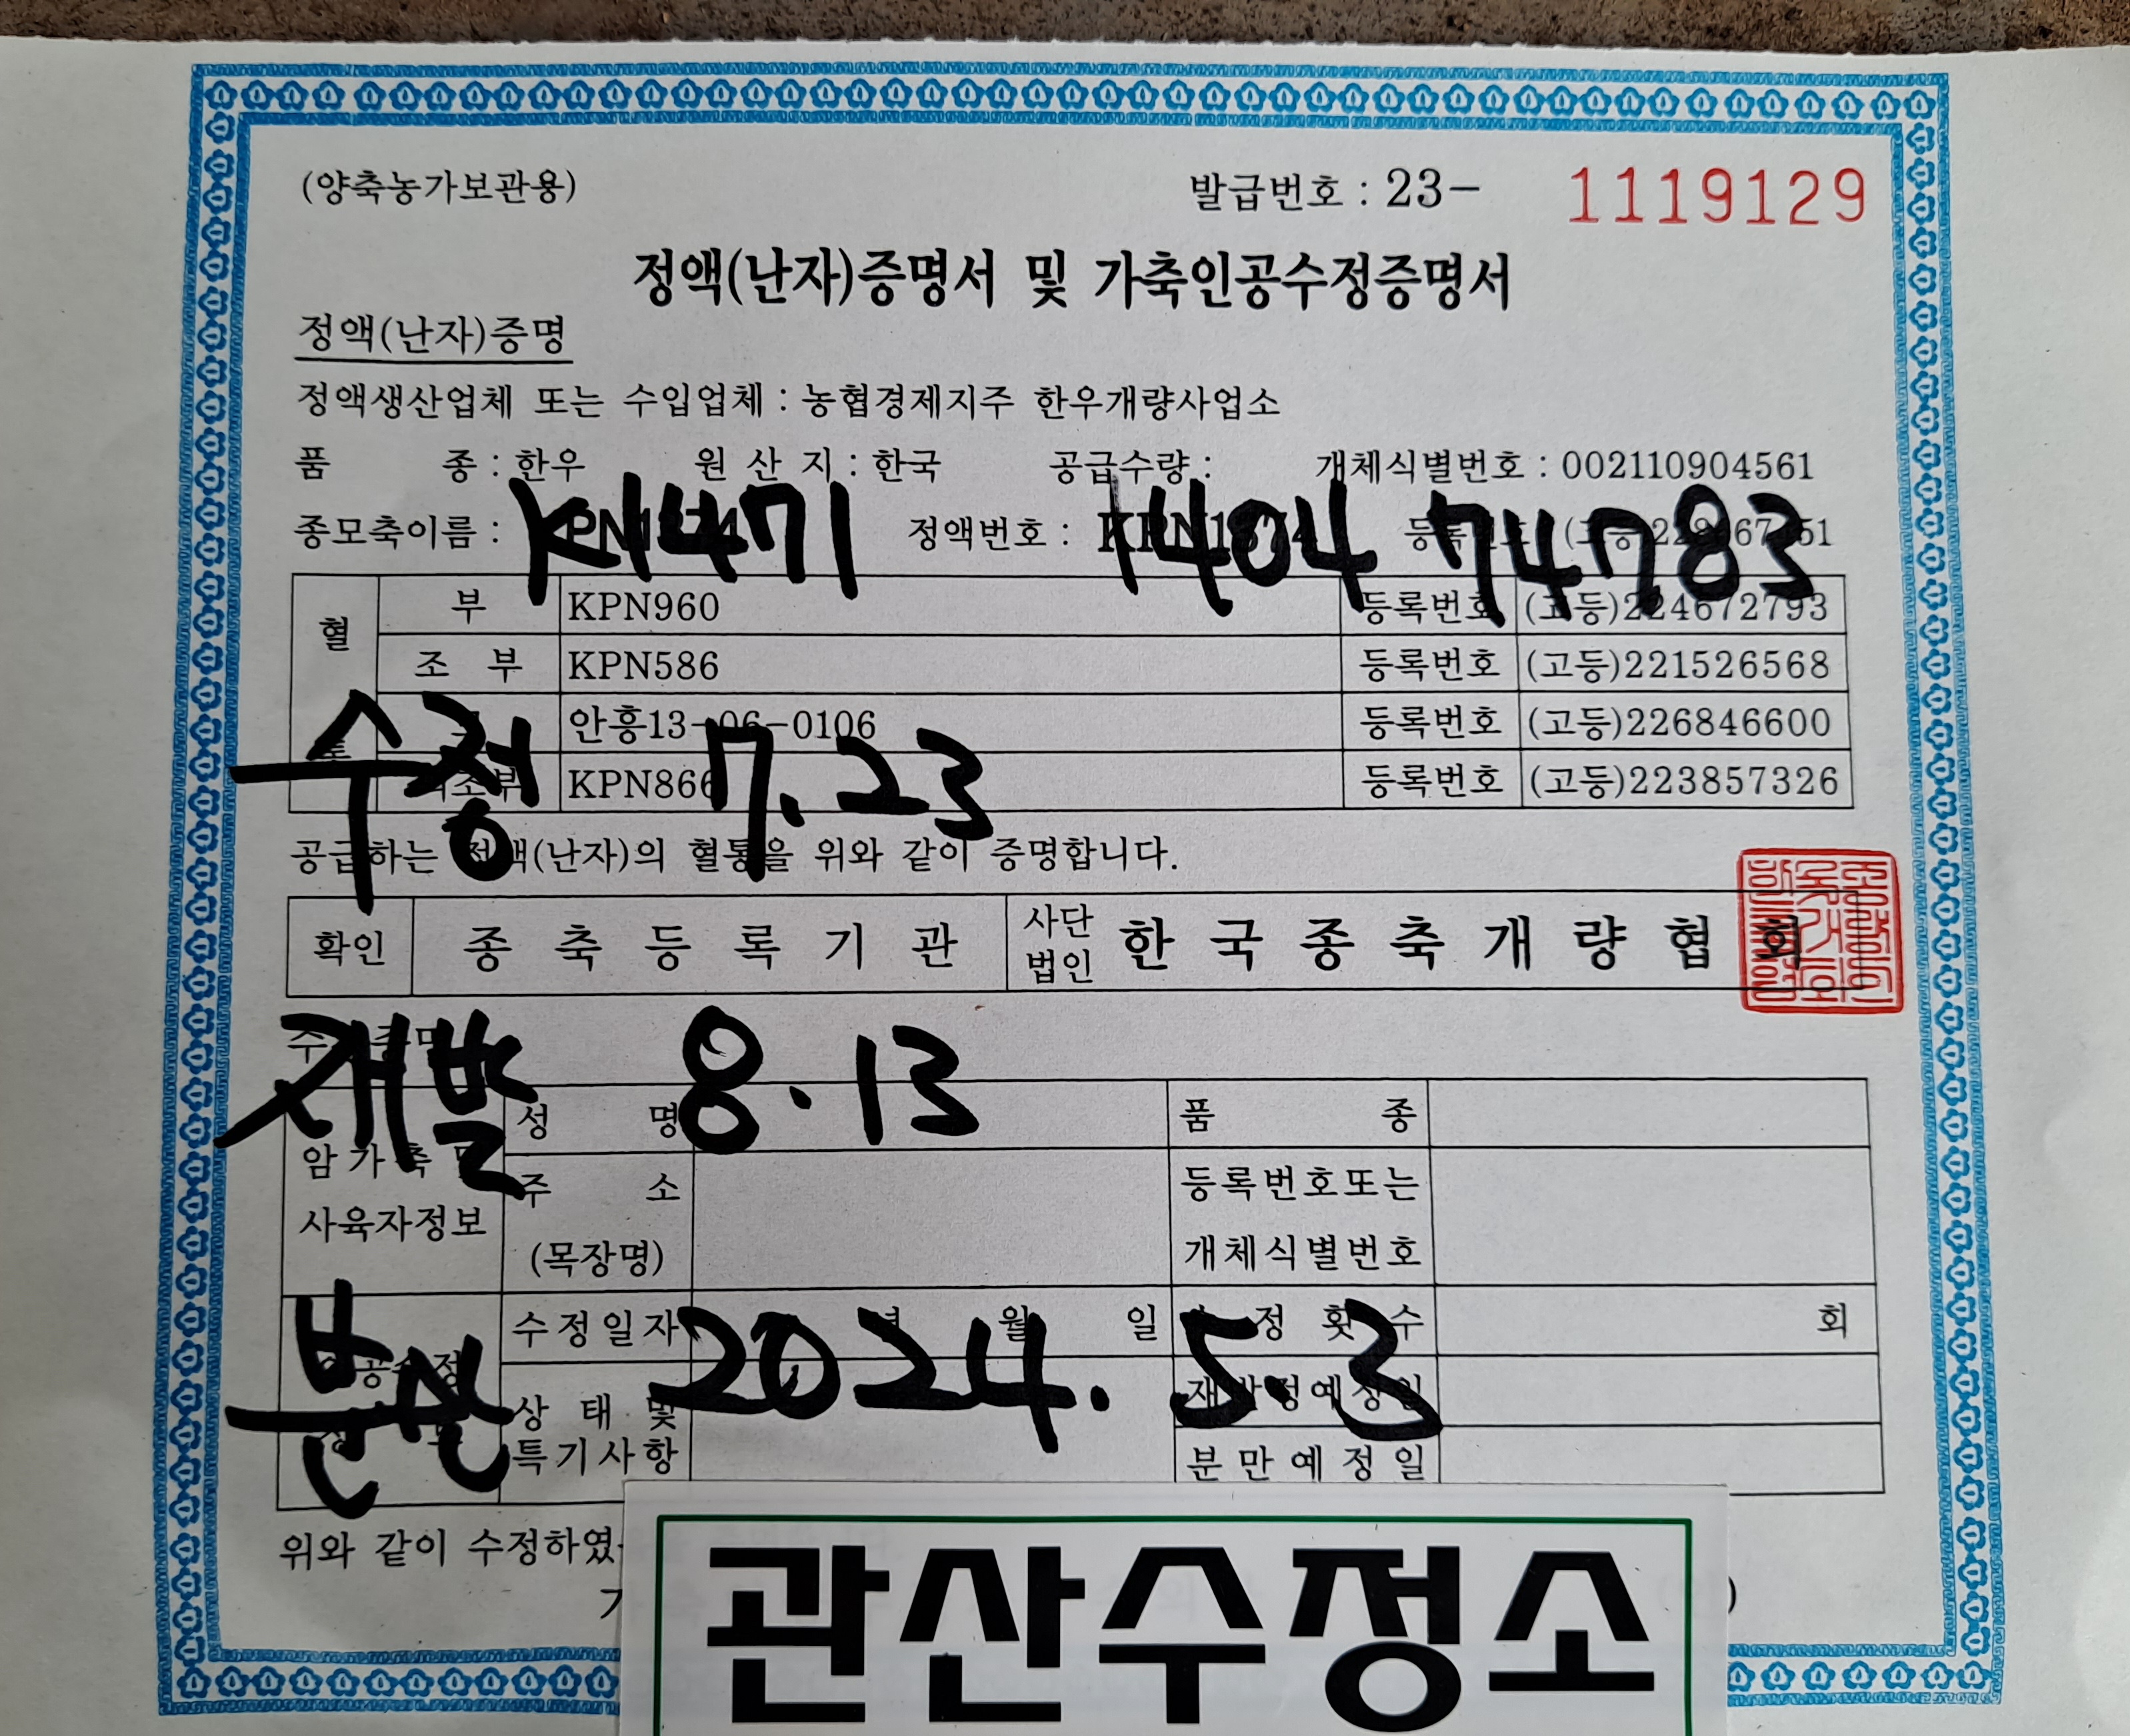 (양축농가보관용) 발급번호 : 23- 1119129
정액(난자)증명서 및 가축인공수정증명서
정액(난자)증명
정액생산업체 또는 수입업체 : 농협경제지주 한우개량사업소
품 종 : 한우 원 산 지 : 한국 공급수량 : 개체식별번호 : 002110904561
K1471 1404 74783
종모축이름 : 정액번호 :
혈
부 KPN960 등록번호 (고등)224672793
조 부 KPN586 등록번호 (고등)221526568
안흥13-06-0106 등록번호 (고등)226846600
KPN866 등록번호 (고등)223857326
수정 7.23
공급하는 정액(난자)의 혈통을 위와 같이 증명합니다.
확인 종 축 등 록 기 관 사단법인 한 국 종 축 개 량 협 회
재발 8.13
성 명 품 종
암가축 및
사육자정보
주 소
(목장명)
등록번호또는
개체식별번호
수정일자 년 월 일 수정횟수 회
분만 2024. 5.3
상 태 및
특기사항
재발정예정일
분만예정일
위와 같이 수정하였
관산수정소